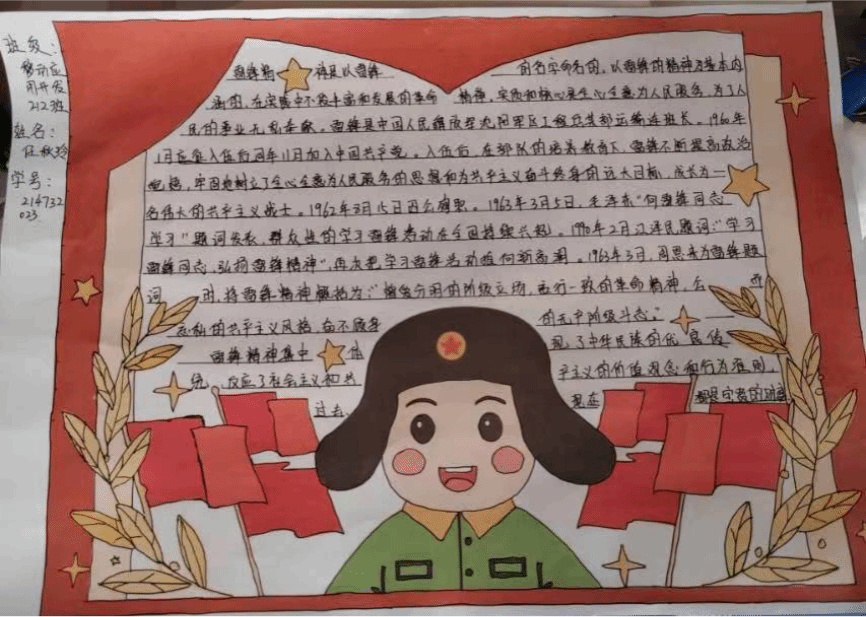 班级：
移动应
用开发
212班
姓名：
任秋玲
学号：
214732
023
雷锋精 神是以雷锋 的名字命名的，以雷锋的精神为基本内
涵的，在实践中不断丰富和发展的革命 精神，实质和核心是全心全意为人民服务，为了人
民的事业无私奉献。雷锋是中国人民解放军沈阳军区工程兵某部运输连班长。1960年
1月应征入伍后同年11月加入中国共产党。入伍后，在部队的培养教育下，雷锋不断提高政治
思想的共产主义和为共产主义奋斗终身的远大目标，成长为一
名伟大的共产主义战士。1962年8月15日因公殉职。1963年3月5日，毛泽东“向雷锋同志
学习”题词发表，群众性的学习雷锋活动在全国持续兴起。1990年2月江泽民题词：“学习
雷锋同志，弘扬雷锋精神”，再次把学习雷锋活动推向新高潮。1963年3月，周恩来为雷锋题
词 时，将雷锋精神概括为：“憎爱分明的阶级立场，言行一致的革命精神，公 而
忘私的共产主义风格，奋不顾身 的无产阶级斗志。”
雷锋精神集中 体 现了中华民族的优 良传
统，反应了社会主义和共 产主义的价值观念和行为准则，
过去、 现在